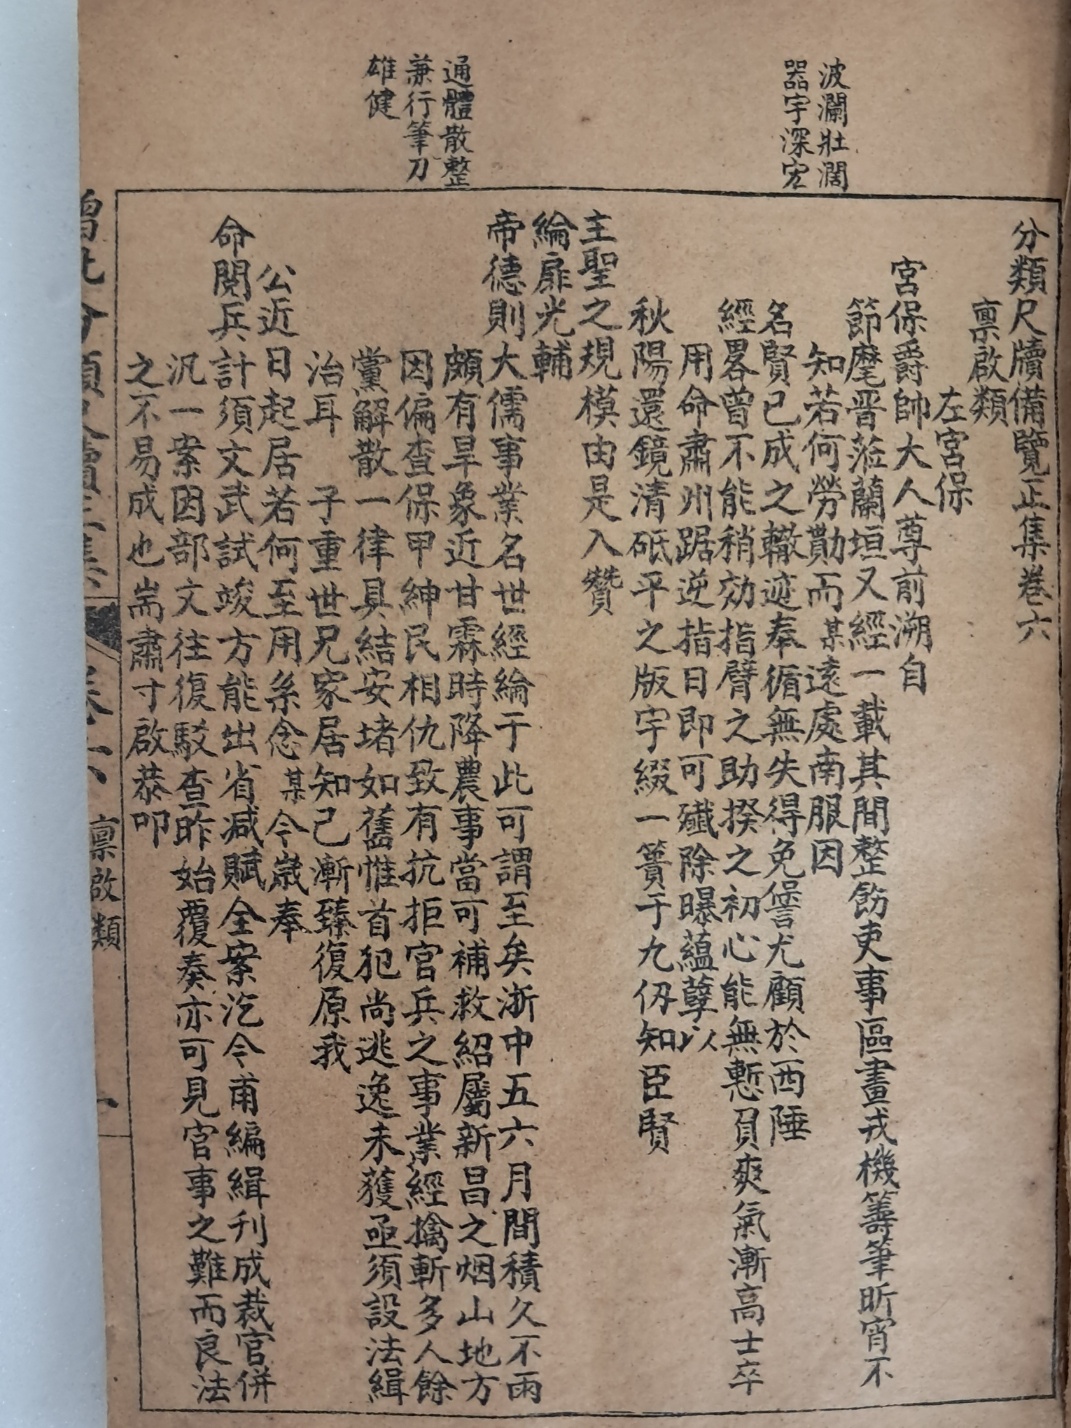 波瀾壯濶
器宇深宏
通體散整
兼行筆刀
雄健
分類尺牘備覽正集卷六
稟啟類
左宮保
宮保爵帥大人尊前溯自
節麾晉蒞蘭垣又經一載其間整飭吏事區畫戎機籌筆昕宵不
知若何勞勩而某遠處南服因
名賢已成之轍迹奉循無失得免諐尤顧於西陲
經畧曾不能稍効指臂之助揆之初心能無慙負爽氣漸高士卒
用命肅州踞逆指日即可殲除曝蘊孽以
秋陽還鏡清砥平之版宇綴一簣于九仭知臣賢
主聖之規模由是入贊
綸扉光輔
帝德則大儒事業名世經綸于此可謂至矣浙中五六月間積久不雨
頗有旱象近甘霖時降農事當可補救紹屬新昌之烟山地方
因偏查保甲紳民相仇致有抗拒官兵之事業經擒斬多人餘
黨解散一律具結安堵如舊惟首犯尚逃逸未獲亟須設法緝
治耳　子重世兄家居知己漸臻復原我
公近日起居若何至用系念某今歲奉
命閱兵計須文武試竣方能出省減賦全案汔今甫編緝刋成裁官併
汛一案因部文往復駁查昨始覆奏亦可見官事之難而良法
之不易成也耑肅寸啟恭叩
卷六
稟啟類
一